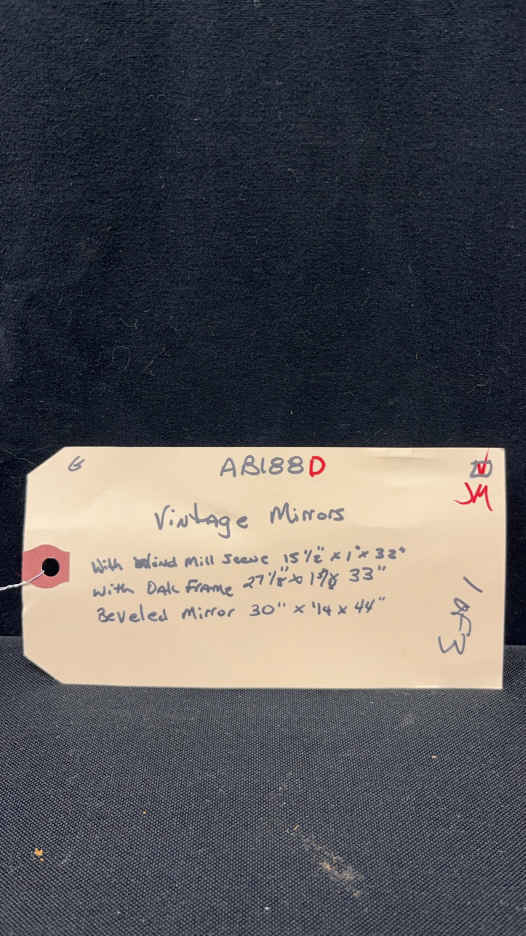 G
AB188D
JM
Vintage Mirrors
With Wind Mill Scene 15 1/2" x 1" x 32"
With Oak Frame 27 1/2" x 1 7/8 33"
Beveled Mirror 30" x 1/4 x 44"
1 of 3